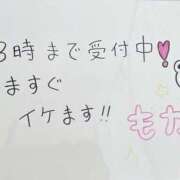 3時まで受付中❣
ますぐ
イケます!!
もな